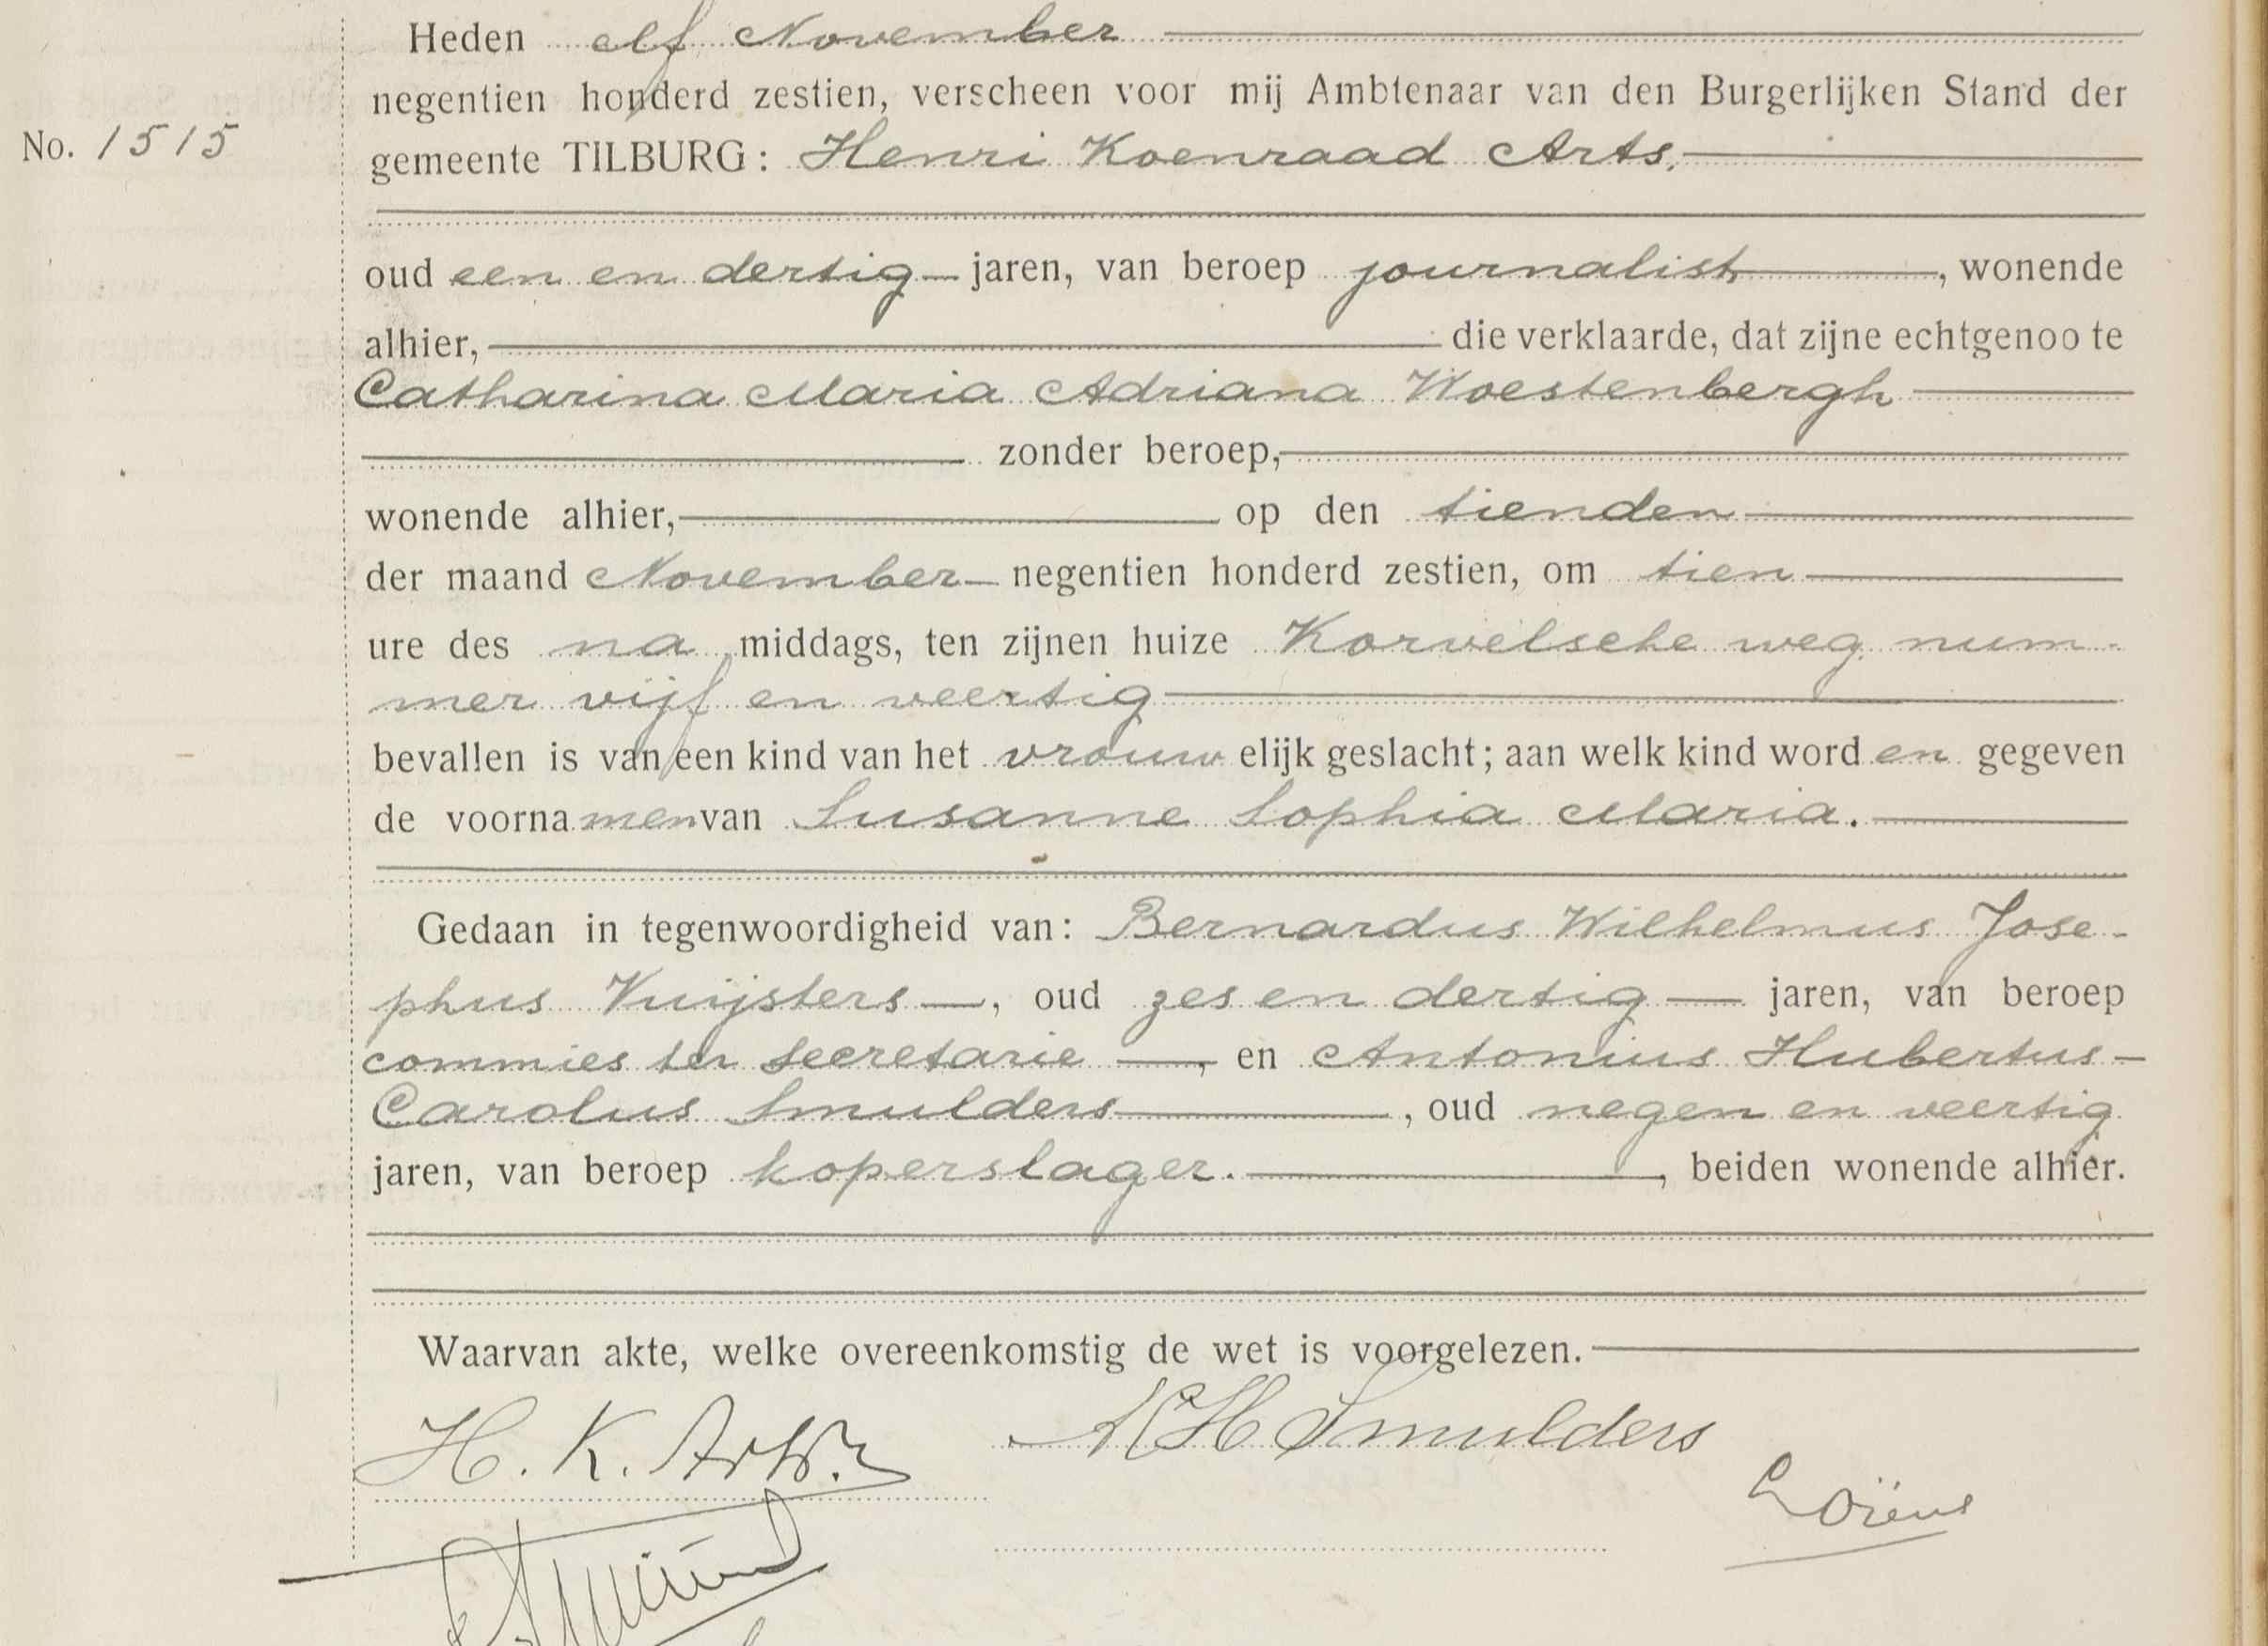 Heden elf November
negentien honderd zestien, verscheen voor mij Ambtenaar van den Burgerlijken Stand der
No. 1515
gemeente TILBURG: Henri Koenraad Arts,
oud een en dertig jaren, van beroep journalist, wonende
alhier, die verklaarde, dat zijne echtgenoote
Catharina Maria Adriana Woestenbergh
zonder beroep,
wonende alhier, op den tienden
der maand November negentien honderd zestien, om tien
ure des na middags, ten zijnen huize Korvelsche weg num-
mer vijf en veertig
bevallen is van een kind van het vrouwelijk geslacht; aan welk kind worden gegeven
de voornamen van Susanne Sophia Maria.
Gedaan in tegenwoordigheid van: Bernardus Wilhelmus Jose-
phus Vuijsters, oud zes en dertig jaren, van beroep
commies ter secretarie, en Antonius Hubertus
Carolus Smulders, oud negen en veertig
jaren, van beroep koperslager., beiden wonende alhier.
Waarvan akte, welke overeenkomstig de wet is voorgelezen.
H. K. Arts.
Smulders